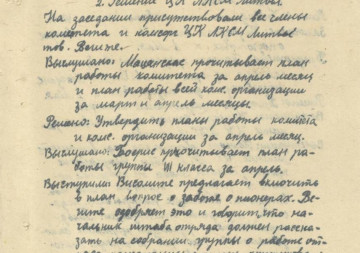 2. Решение ЦК ЛКСМ Литвы
На заседании присутствовали все члены
комитета и ЦК ЛКСМ Литвы
тов.
Выслушано: прочитывает план
работы комитета за апрель месяц
и план работы всей комс. организации
за март и апрель месяцы
Решено: Утвердить планы работы комитета
и комс. организации за апрель месяц.
Выслушано: прочитывает план ра-
боты группы III класса за апрель.
Выступили: предлагает включить
в план вопрос о заботе о пионерах. Ве-
одобряет это и говорит, что на-
чальник штаба отряда должен расска-
зать на собрании группы о работе от-